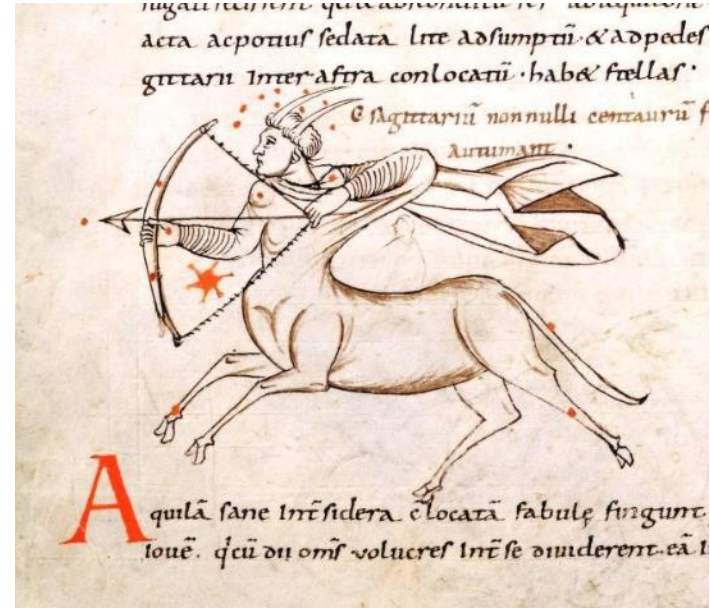 acta ac potius sedata lite adsumptū · & ad pedes
gittarii inter astra conlocatū · hab& stellas ·
sagittariū nonnulli centaurū f
Autumant ·
Aquilā sane int̄ sidera c̄locatā fabulę fingunt
iouē. q̇ cū dii om̄s volucres int̄ se diuiderent. eā i